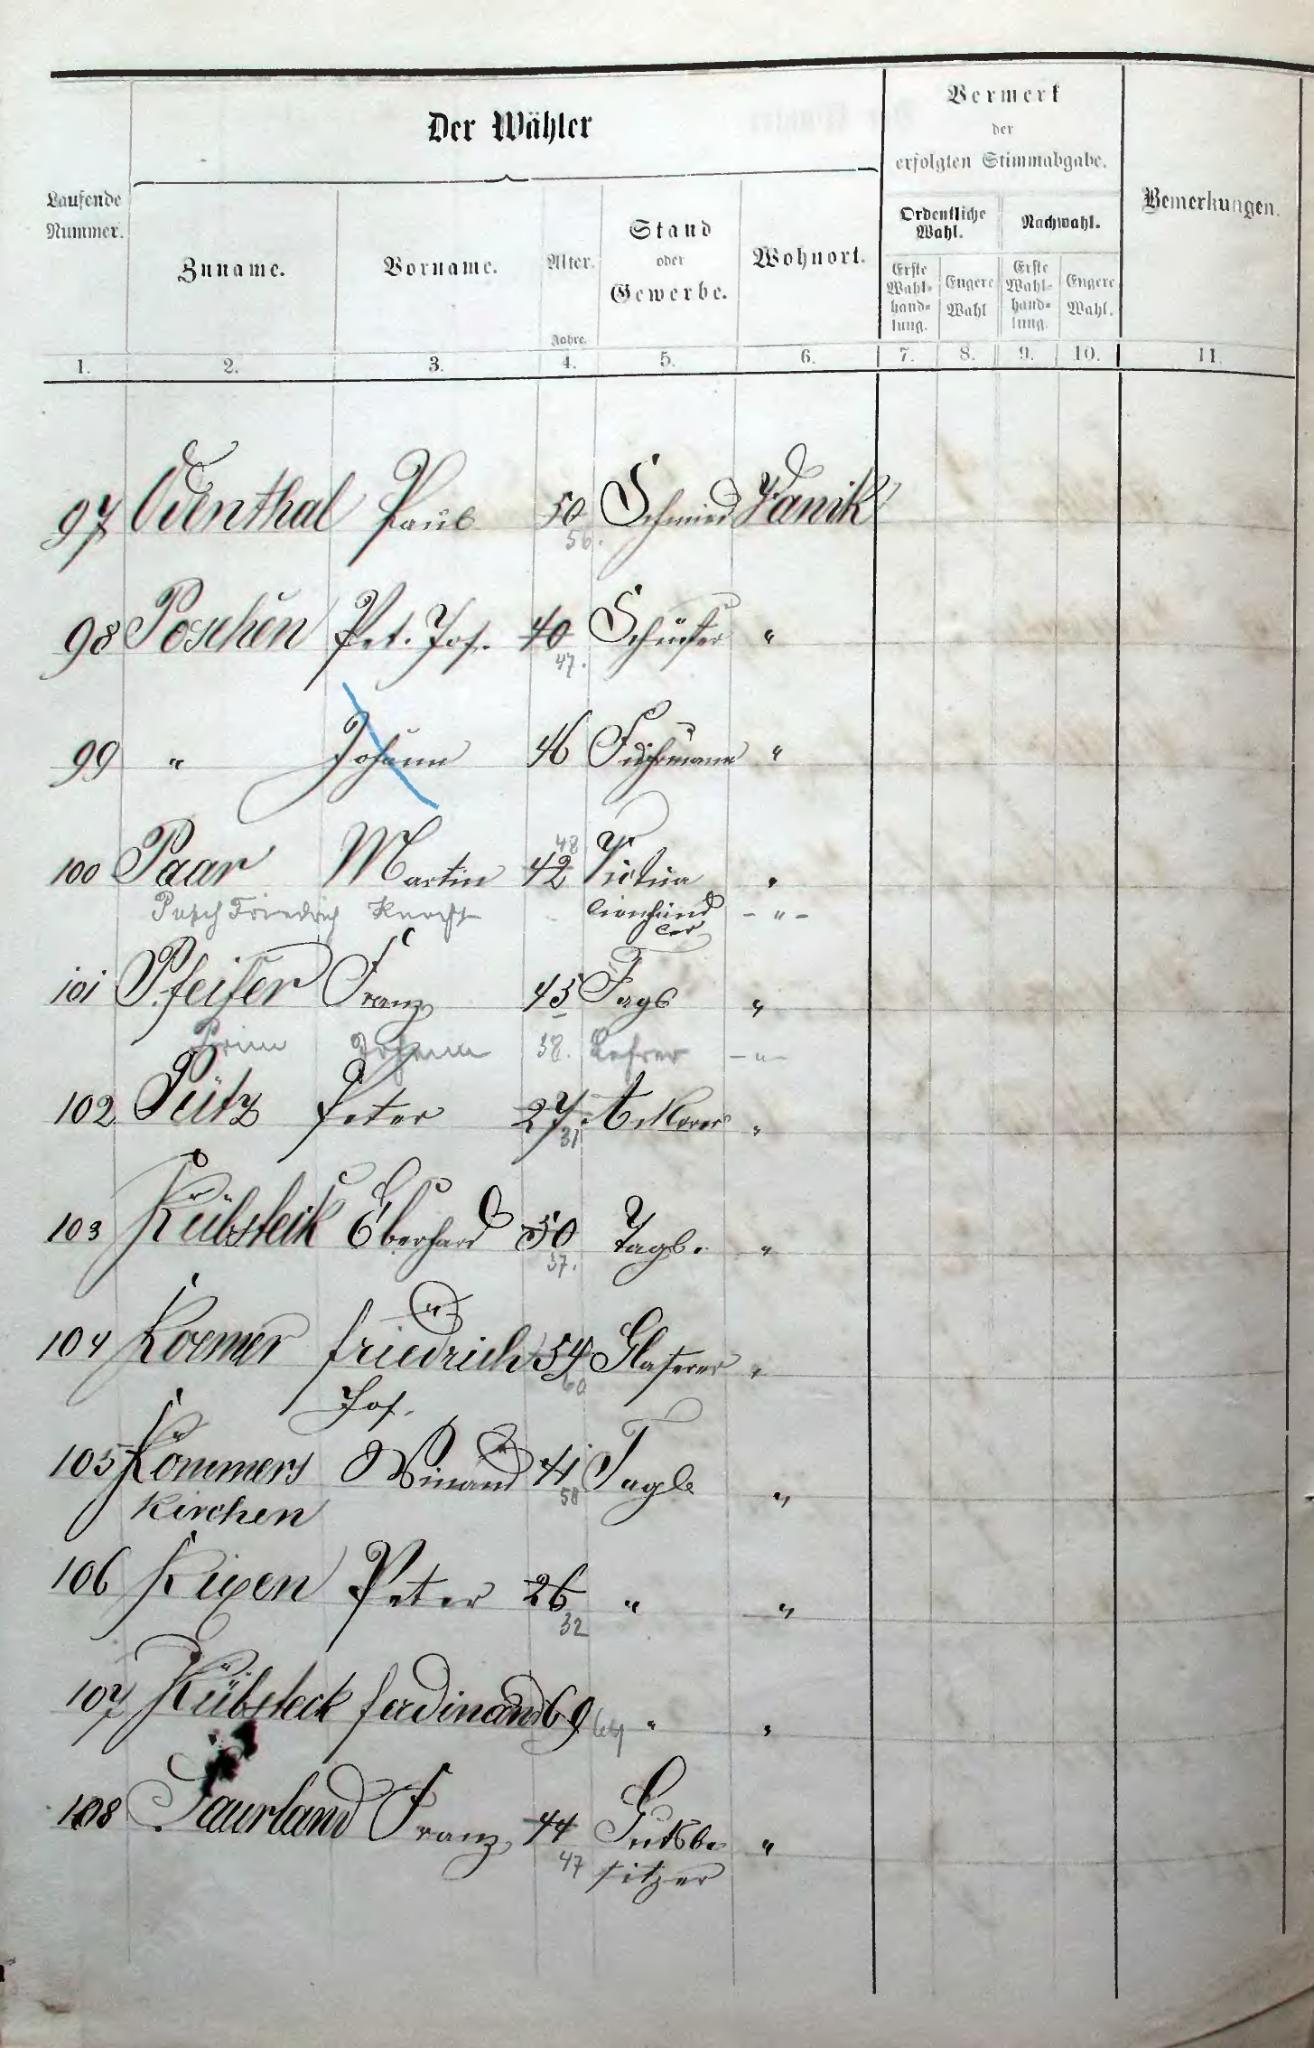 Der Wähler
Vermerk
der
erfolgten Stimmabgabe.
Laufende
Nummer.
Zuname.
Vorname.
Alter.
Jahre.
Stand
oder
Gewerbe.
Wohnort.
Ordentliche
Wahl.
Nachwahl.
Erste
Wahl-
hand-
lung.
Engere
Wahl
Erste
Wahl-
hand-
lung.
Engere
Wahl.
Bemerkungen.
1. 2. 3. 4. 5. 6. 7. 8. 9. 10. 11.
97 Odenthal Paul 50 Schmied
56.
98 Poschen Pet. Jos. 40 Schuster "
47.
99 " Johann 46 Fuhrmann "
48
100 Paar Martin 42 Victua "
Pesch Friedrich Knecht lienhänd - " -
ler
101 Pfeifer Franz 45 Tagl "
Prim Johann 38. Lehrer - " -
102 Pütz Peter 27 Ackerer "
31
103 Rübsteik Eberhard 50 Tagl. "
57.
104 Roemer Friedrich 54 Glaserer "
60
Jos.
105 Römmers Winand 41 Tagl "
58
Kirchen
106 Rixen Peter 26 " "
32
107 Rübsteck Ferdinand 69 64 " "
108 Saurland Franz 44 Gutsbe "
47 sitzer